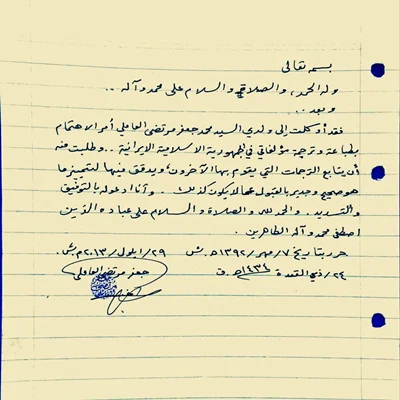 بسمه تعالى
وله الحمد، والصلاة والسلام على محمد وآله ..
وبعد ..
فقد أوكلت إلى ولدي السيد محمد جعفر مرتضى العاملي أمر الاهتمام
بطباعة وترجمة مؤلفاتي في الجمهورية الاسلامية الايرانية .. وطلبت منه
أن يتابع الترجمات التي يقوم بها الآخرون، ويدقق فيها لتمييز ما
هو صحيح وجدير بالقبول عما لا يكون كذلك . وأنا أدعو له بالتوفيق
والتسديد . والحمد لله والصلاة والسلام على عباده الذين
اصطفى محمد وآله الطاهرين .
حرر بتاريخ ٧/مهر/١٣٩٢ه‍.ش ٢٩/ايلول/٢٠١٣م.ش.
٢٤/ذي القعدة ١٤٣٤ه‍.ق
جعفر مرتضى العاملي